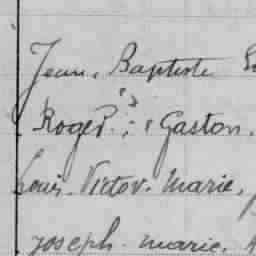 Jean. Baptiste
Roger. Gaston.
Louis. Victor. Marie.
Joseph. Marie.